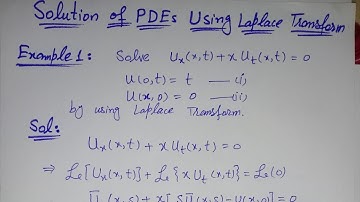 Solution of PDEs Using Laplace Transform
Example 1: Solve Ux(x,t) + x Ut(x,t) = 0
U(0,t) = t —— (i)
U(x,0) = 0 —— (ii)
by using Laplace Transform.
Sol:
Ux(x,t) + x Ut(x,t) = 0
⇒ ℒ[Ux(x,t)] + ℒ{x Ut(x,t)} = ℒ(0)
Ūx(x,s) + x[sŪ(x,s) - U(x,0)] = 0